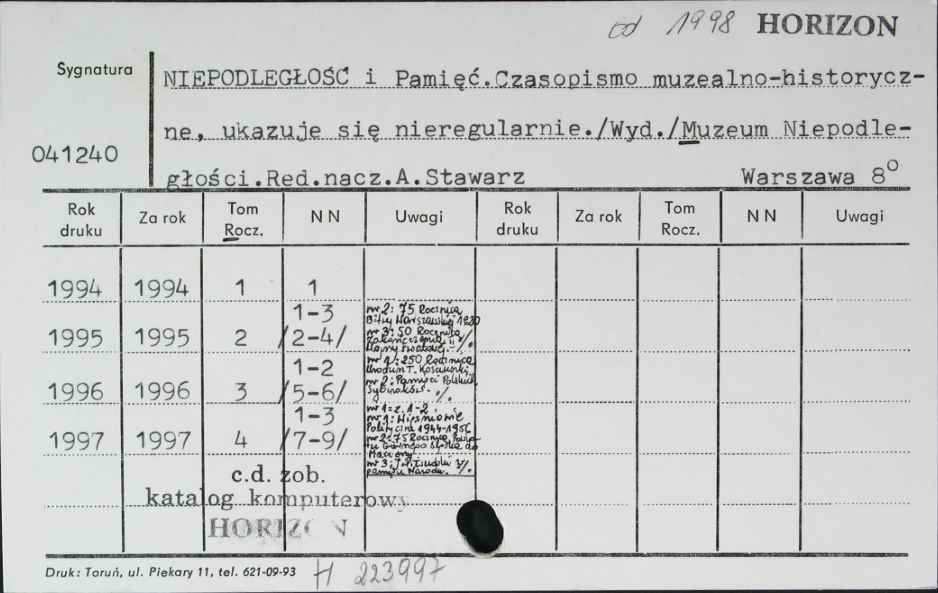 od 1998 HORIZON
Sygnatura
NIEPODLEGŁOŚĆ i Pamięć.Czasopismo muzealno-historycz-
ne, ukazuje się nieregularnie./Wyd./Muzeum Niepodle-
041240
głości.Red.nacz.A.Stawarz Warszawa 8°
Rok druku Za rok Tom Rocz. N N Uwagi Rok druku Za rok Tom Rocz. N N Uwagi
1994 1994 1 1
1-3
1995 1995 2 /2-4/
nr 2: 75 Rocznica
Bitwy Warszawskiej 1920
nr 3: 50 Rocznica
Zakończenia II
Wojny Światowej
1-2
1996 1996 3 /5-6/
nr 1: 250 Rocznica
Urodzin T. Kościuszki
nr 2: Pamięci Polskich
Sybiraków.
1-3
1997 1997 4 /7-9/
nr 1: z. 1-2.
nr 1: Więźniowie
Polityczni 1944-1956
nr 2: 75 Rocznica
Górnego Śląska do
Macierzy.
nr 3: J. Piłsudski w
pamięci Narodu.
c.d. zob.
katalog komputerowy
HORIZON
Druk: Toruń, ul. Piekary 11, tel. 621-09-93 H 223997